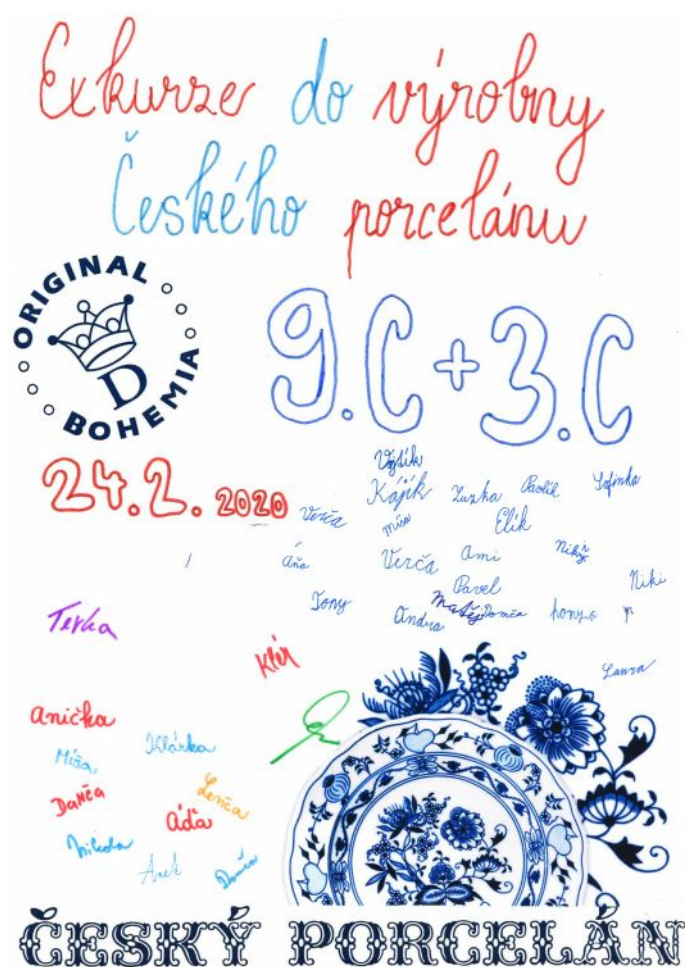 Exkurze do výrobny
Českého porcelánu
ORIGINAL
BOHEMIA
D
9.C + 3.C
24.2. 2020
Vojtík
Kájík Zuzka Pavlík Sofinka
Verča Míša Elík
Áňa Verča Ami Niký
Pavel Niki
Tony Andrea Matěj Domča
Terka
Klér
Laura
Anička
Míša Klárka
Danča Lenča
Áďa
Nikola
Anet Domča
ČESKÝ PORCELÁN